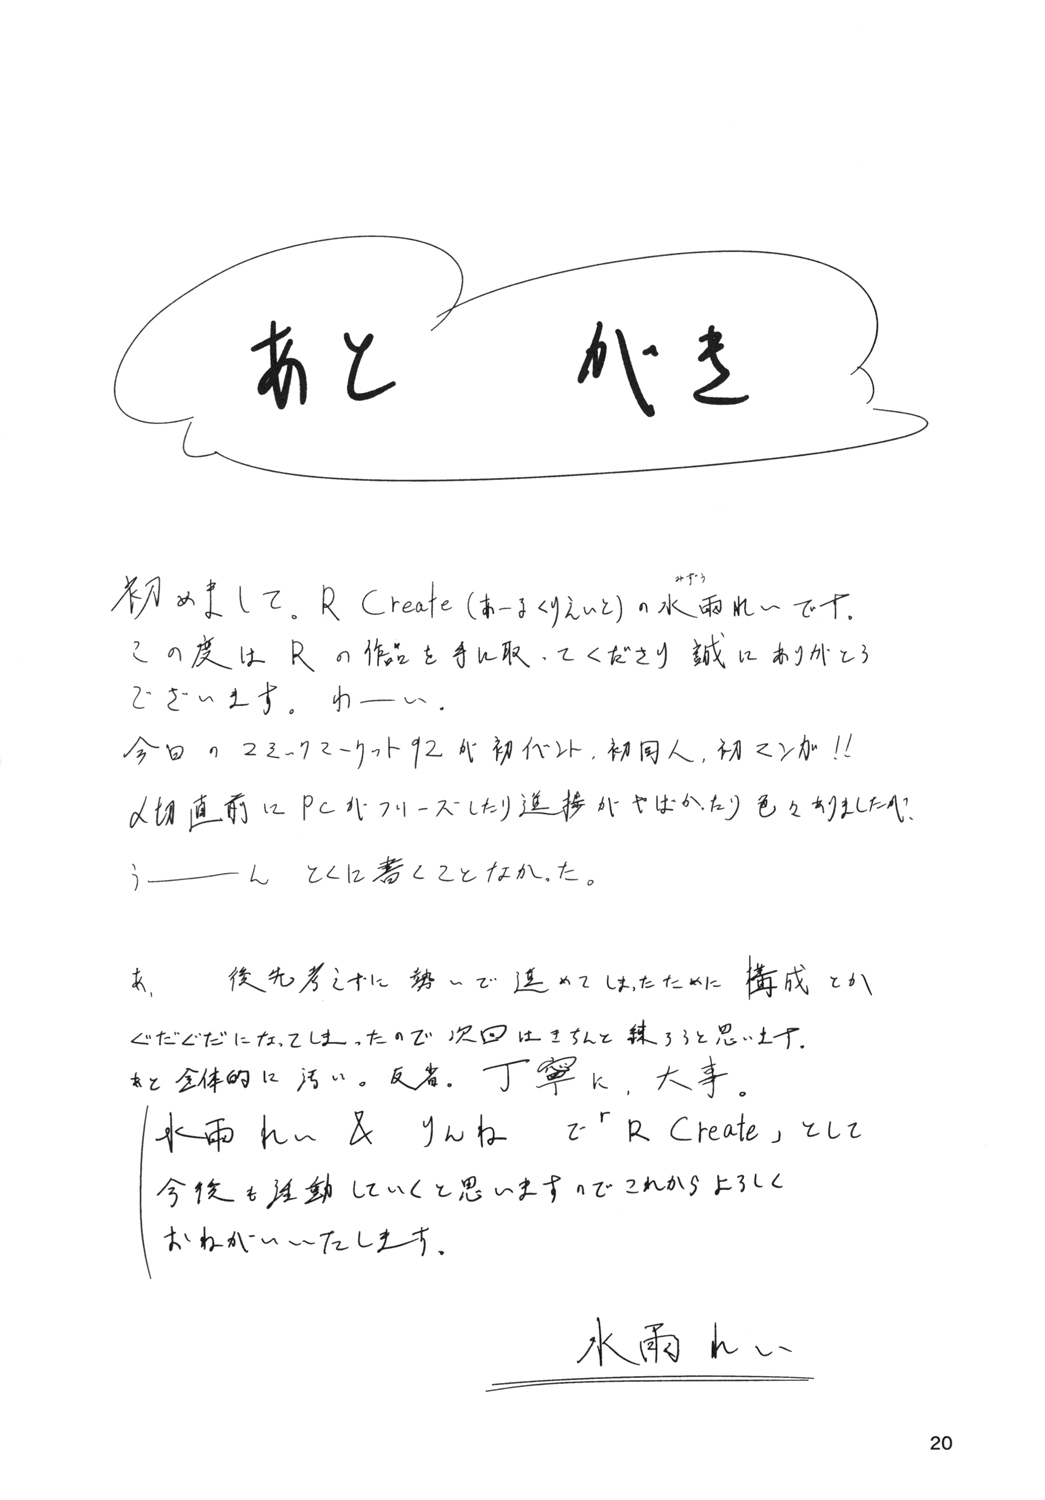 あとがき
みずう
初めまして。R Create(あーるくりえいと)の水雨れいです.
この度は Rの作品を手に取ってくださり 誠にありがとう
ございます。 わーい.
今回のコミックマーケット92が初イベント,初同人,初マンガ!!
〆切直前にPCがフリーズしたり進捗がやばかったり色々ありましたが,
うーーーん とくに書くことなかった。
あ, 後先考えずに勢いで進めてしまったために構成とか
ぐだぐだになってしまったので次回はきちんと練ろうと思います.
あと全体的に汚い。反省。丁寧に,大事。
水雨れい & りんね で「R Create」として
今後も活動していくと思いますのでこれからよろしく
おねがいいたします.
水雨れい
20